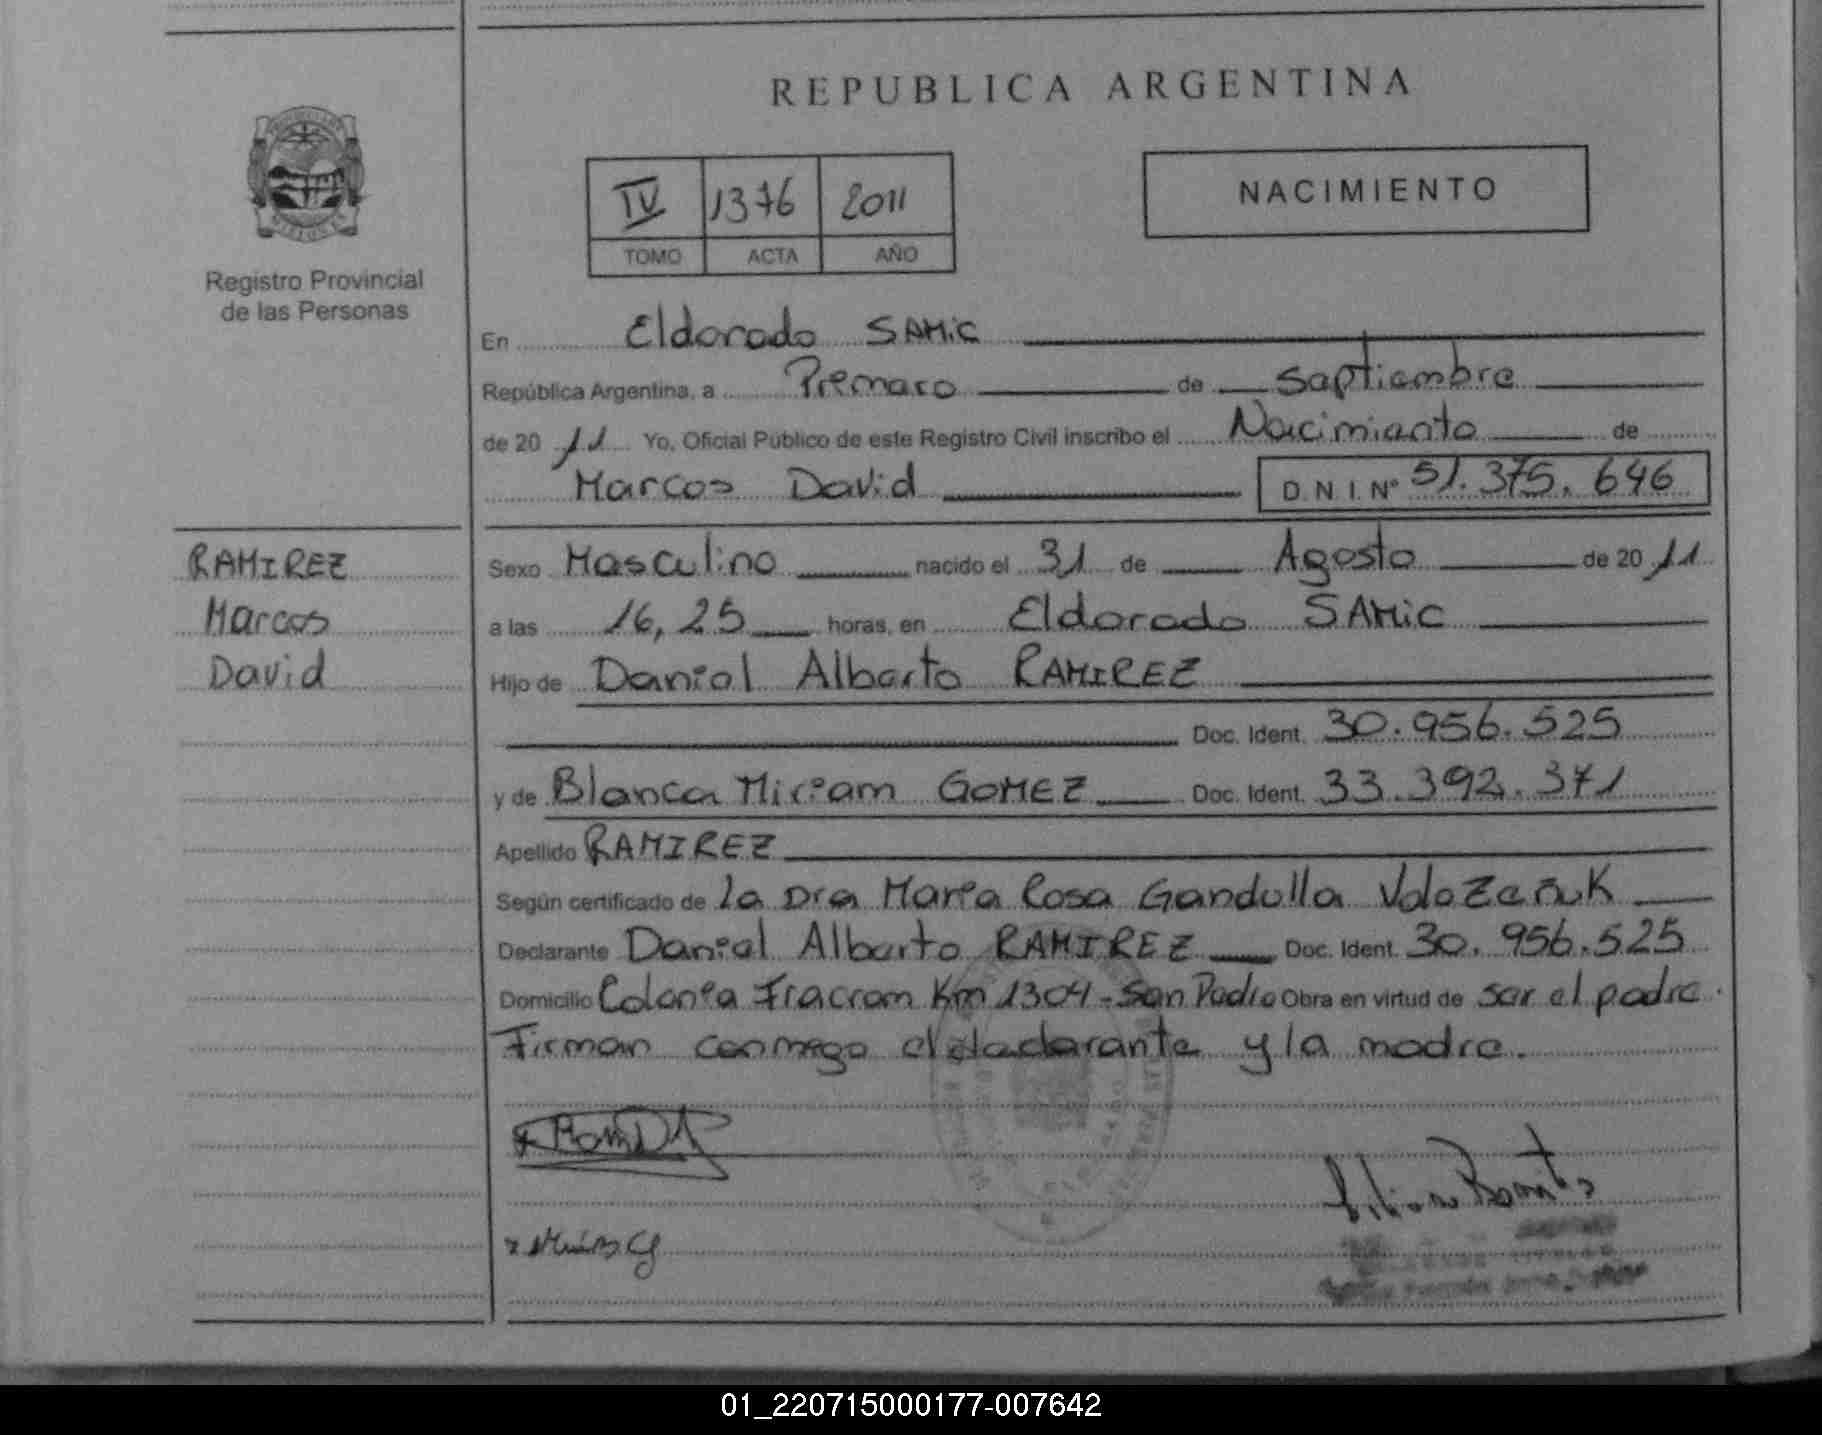 REPUBLICA ARGENTINA
IV 1376 2011
TOMO ACTA AÑO
NACIMIENTO
Registro Provincial
de las Personas
En Eldorado SAMiC
República Argentina, a Primero de Septiembre
de 20 11 Yo, Oficial Público de este Registro Civil inscribo el Nacimiento de
Marcos David D.N.I. Nº 51.375.646
RAMIREZ
Marcos
David
Sexo Masculino nacido el 31 de Agosto de 20 11
a las 16,25 horas, en Eldorado SAMiC
Hijo de Daniel Alberto RAMIREZ
Doc. Ident. 30.956.525
y de Blanca Miriam GOMEZ Doc. Ident. 33.392.371
Apellido RAMIREZ
Según certificado de la Dra Maria Rosa Gandulla
Declarante Daniel Alberto RAMIREZ Doc. Ident. 30.956.525
Domicilio Colonia Fracram Km 1304 - San Pedro Obra en virtud de ser el padre.
Firman conmigo el declarante y la madre.
01_220715000177-007642